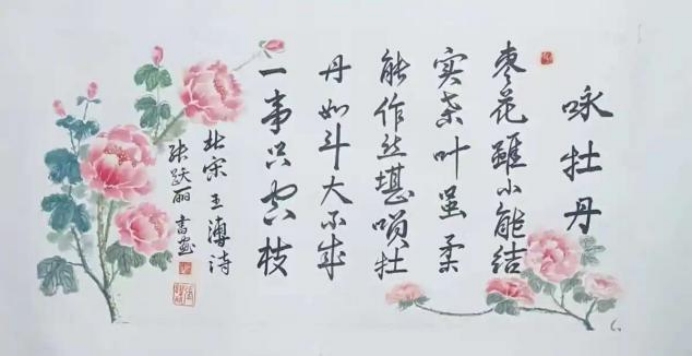 咏牡丹
枣花虽小能结
实桑叶虽柔
能作丝堪嗔牡
丹如斗大不成
一事只空枝
北宋王溥诗
张跃丽书画